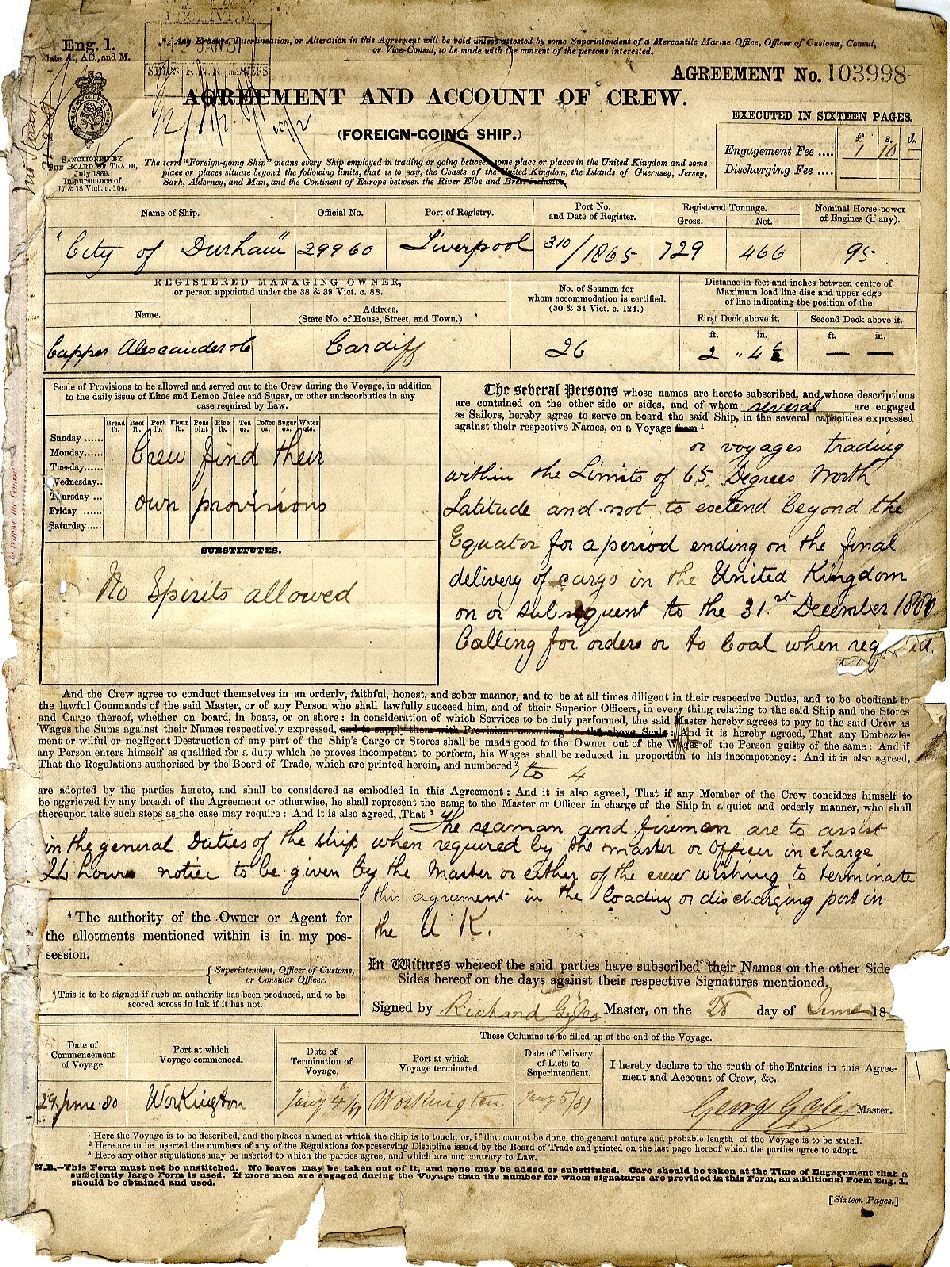 Eng. 1.
Any Erasure, Interlineation, or Alteration in this Agreement will be void unless attested by some Superintendent of a Mercantile Marine Office, Officer of Customs, Consul,
or Vice-Consul, to be made with the consent of the persons interested.
AGREEMENT No. 103998
AGREEMENT AND ACCOUNT OF CREW.
(FOREIGN-GOING SHIP.)
EXECUTED IN SIXTEEN PAGES.
£ s. d.
Engagement Fee ....
Discharging Fee ....
SANCTIONED BY
THE BOARD OF TRADE,
17 & 18 Vict. c. 104.
The term "Foreign-going Ship" means every Ship employed in trading or going between some place or places in the United Kingdom and some
place or places situate beyond the following limits, that is to say, the Coasts of the United Kingdom, the Islands of Guernsey, Jersey,
Sark, Alderney, and Man, and the Continent of Europe between the River Elbe and Brest inclusive.
Name of Ship. Official No. Port of Registry. Port No. and Date of Register. Registered Tonnage. Gross. Net. Nominal Horse-power of Engines (if any).
"City of Durham" 29960 Liverpool 310/1865 729 466 95
REGISTERED MANAGING OWNER,
or person appointed under the 38 & 39 Vict. c. 88.
Name. Address.
(State No. of House, Street, and Town.)
No. of Seamen for
whom accommodation is certified.
(30 & 31 Vict. c. 124.)
Distance in feet and inches between centre of
Maximum load line disc and upper edge
of line indicating the position of the
First Deck above it. Second Deck above it.
ft. in. ft. in.
Capper Alexander & Co Cardiff 26 2 "4½ — —
Scale of Provisions to be allowed and served out to the Crew during the Voyage, in addition
to the daily issue of Lime and Lemon Juice and Sugar, or other antiscorbutics in any
case required by Law.
Bread lb. Beef lb. Pork lb. Flour lb. Peas pint Rice lb. Tea oz. Coffee oz. Sugar oz. Water qts.
Sunday ......
Monday ......
Tuesday......
Wednesday..
Thursday ...
Friday ......
Saturday.....
Crew find their
own provisions
SUBSTITUTES.
No Spirits allowed
The several Persons whose names are hereto subscribed, and whose descriptions
are contained on the other side or sides, and of whom several are engaged
as Sailors, hereby agree to serve on board the said Ship, in the several capacities expressed
against their respective Names, on a Voyage from¹
or voyages trading
within the Limits of 65 Degrees North
Latitude and not to extend beyond the
Equator for a period ending on the final
delivery of cargo in the United Kingdom
on or subsequent to the 31st December 1880
Calling for orders or to Coal when
And the Crew agree to conduct themselves in an orderly, faithful, honest, and sober manner, and to be at all times diligent in their respective Duties, and to be obedient to
the lawful Commands of the said Master, or of any Person who shall lawfully succeed him, and of their Superior Officers, in every thing relating to the said Ship and the Stores
and Cargo thereof, whether on board, in boats, or on shore: in consideration of which Services to be duly performed, the said Master hereby agrees to pay to the said Crew as
Wages the Sums against their Names respectively expressed, and to supply them with Provisions according to the above Scale: And it is hereby agreed, That any Embezzle-
ment or wilful or negligent Destruction of any part of the Ship's Cargo or Stores shall be made good to the Owner out of the Wages of the Person guilty of the same: And if
any Person enters himself as qualified for a duty which he proves incompetent to perform, his Wages shall be reduced in proportion to his incompetency: And it is also agreed,
That the Regulations authorised by the Board of Trade, which are printed herein, and numbered² 1 to 4
are adopted by the parties hereto, and shall be considered as embodied in this Agreement: And it is also agreed, That if any Member of the Crew considers himself to
be aggrieved by any breach of the Agreement or otherwise, he shall represent the same to the Master or Officer in charge of the Ship in a quiet and orderly manner, who shall
thereupon take such steps as the case may require: And it is also agreed, That³ The seaman and fireman are to assist
in the general Duties of the ship when required by the master or Officer in charge
24 hours notice to be given by the Master or either of the crew wishing to terminate
this agreement in the loading or discharging port in
the U K.
⁴The authority of the Owner or Agent for
the allotments mentioned within is in my pos-
session.
Superintendent, Officer of Customs,
or Consular Officer.
This is to be signed if such an authority has been produced, and to be
scored across in ink if it has not.
In Witness whereof the said parties have subscribed their Names on the other Side
Sides hereof on the days against their respective Signatures mentioned,
Signed by Richard Master, on the 28 day of June 18
These Columns to be filled up at the end of the Voyage.
Date of Commencement of Voyage Port at which Voyage commenced. Date of Termination of Voyage. Port at which Voyage terminated Date of Delivery of Lists to Superintendent. I hereby declare to the truth of the Entries in this Agree-
ment and Account of Crew, &c.
29 June 80 Workington Jany 4/81 Workington Jany 5/81 George Master.
¹ Here the Voyage is to be described, and the places named at which the ship is to touch, or, if that cannot be done, the general nature and probable length of the Voyage is to be stated.
² Here are to be inserted the numbers of any of the Regulations for preserving Discipline issued by the Board of Trade and printed on the last page hereof which the parties agree to adopt.
³ Here any other stipulations may be inserted to which the parties agree, and which are not contrary to Law.
N.B.—This Form must not be unstitched. No leaves may be taken out of it, and none may be added or substituted. Care should be taken at the Time of Engagement that a
sufficiently large Form is used. If more men are engaged during the Voyage than the number for whom signatures are provided in this Form, an additional Form Eng. 1.
should be obtained and used.
[Sixteen Pages.]